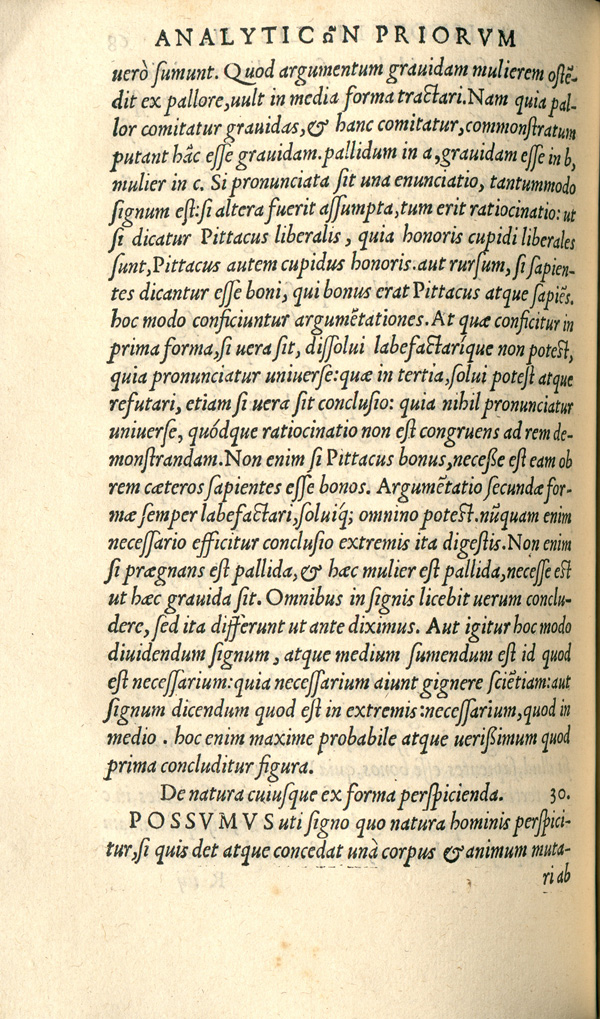 ANALYTICῶN PRIORVM
uerò ſumunt. Quod argumentum grauidam mulierem oſtē-
dit ex pallore, uult in media forma tractari. Nam quia pal-
lor comitatur grauidas, & hanc comitatur, commonſtratum
putant hāc eſſe grauidam. pallidum in a, grauidam eſſe in b,
mulier in c. Si pronunciata ſit una enunciatio, tantummodo
ſignum eſt: ſi altera fuerit aſſumpta, tum erit ratiocinatio: ut
ſi dicatur Pittacus liberalis, quia honoris cupidi liberales
ſunt, Pittacus autem cupidus honoris. aut rurſum, ſi ſapien-
tes dicantur eſſe boni, qui bonus erat Pittacus atque ſapiēs.
hoc modo conficiuntur argumētationes. At quæ conficitur in
prima forma, ſi uera ſit, diſſolui labefactaríque non poteſt,
quia pronunciatur uniuerſe: quæ in tertia, ſolui poteſt atque
refutari, etiam ſi uera ſit concluſio: quia nihil pronunciatur
uniuerſe, quódque ratiocinatio non eſt congruens ad rem de-
monſtrandam. Non enim ſi Pittacus bonus, neceße eſt eam ob
rem cæteros ſapientes eſſe bonos. Argumētatio ſecundæ for-
mæ ſemper labefactari, ſoluiq́; omnino poteſt. nūquam enim
neceſſario efficitur concluſio extremis ita digeſtis. Non enim
ſi prægnans eſt pallida, & hæc mulier eſt pallida, neceſſe eſt
ut hæc grauida ſit. Omnibus in ſignis licebit uerum conclu-
dere, ſed ita differunt ut ante diximus. Aut igitur hoc modo
diuidendum ſignum, atque medium ſumendum eſt id quod
eſt neceſſarium: quia neceſſarium aiunt gignere ſciētiam: aut
ſignum dicendum quod eſt in extremis: neceſſarium, quod in
medio. hoc enim maxime probabile atque uerißimum quod
prima concluditur figura.
De natura cuiuſque ex forma perſpicienda. 30.
POSSVMVS uti ſigno quo natura hominis perſpici-
tur, ſi quis det atque concedat unà corpus & animum muta-
ri ab